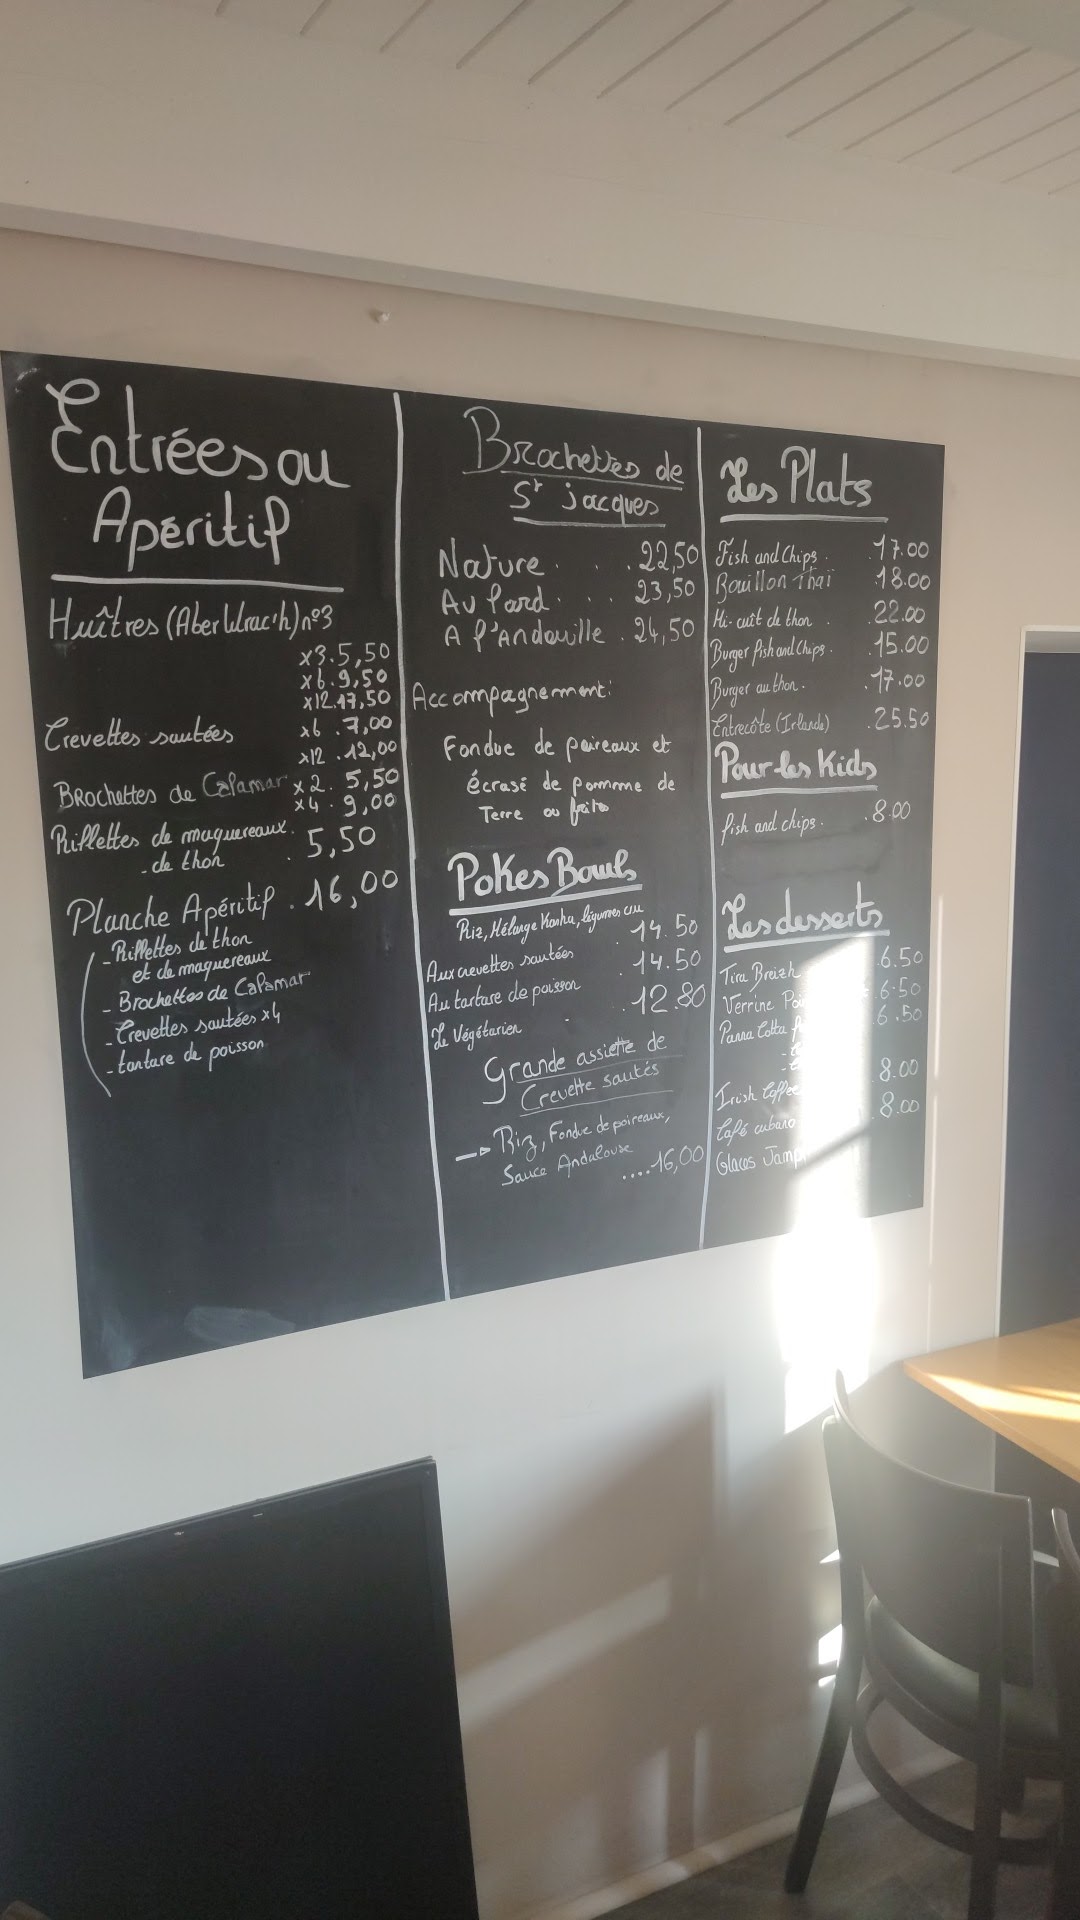 Entrées ou
Apéritif
Huîtres (Aber Wrac'h) n°3
x3.5,50
x6.9,50
x12.17,50
Crevettes sautées x6.7,00
x12.12,00
Brochettes de Calamar x2.5,50
x4.9,00
Rillettes de maquereaux. 5,50
- de thon
Planche Apéritif. 16,00
- Rillettes de thon
et de maquereaux
- Brochettes de Calamar
- Crevettes sautées x4
- tartare de poisson
Brochettes de
St jacques
Nature...22,50
Au Lard...23,50
A l'Andouille.24,50
Accompagnement:
Fondue de poireaux et
écrasé de pomme de
Terre ou frites
Pokes Bowls
Riz, Mélange Kasha, légumes cru
Aux crevettes sautées 14.50
Au tartare de poisson. 14.50
Le Végétarien. 12.80
Grande assiette de
Crevette sautés
→ Riz, Fondue de poireaux,
Sauce Andalouse
....16,00
Les Plats
Fish and Chips. .17.00
Bouillon Thaï .18.00
Mi-cuit de thon. .22.00
Burger fish and Chips. .15.00
Burger au thon. .17.00
Entrecôte (Irlande) .25.50
Pour les Kids
fish and chips. .8.00
Les desserts
Tira Breizh .6.50
Verrine 6.50
Panna Cotta 6.50
Irish Coffee 8.00
Café cubano 8.00
Glaces